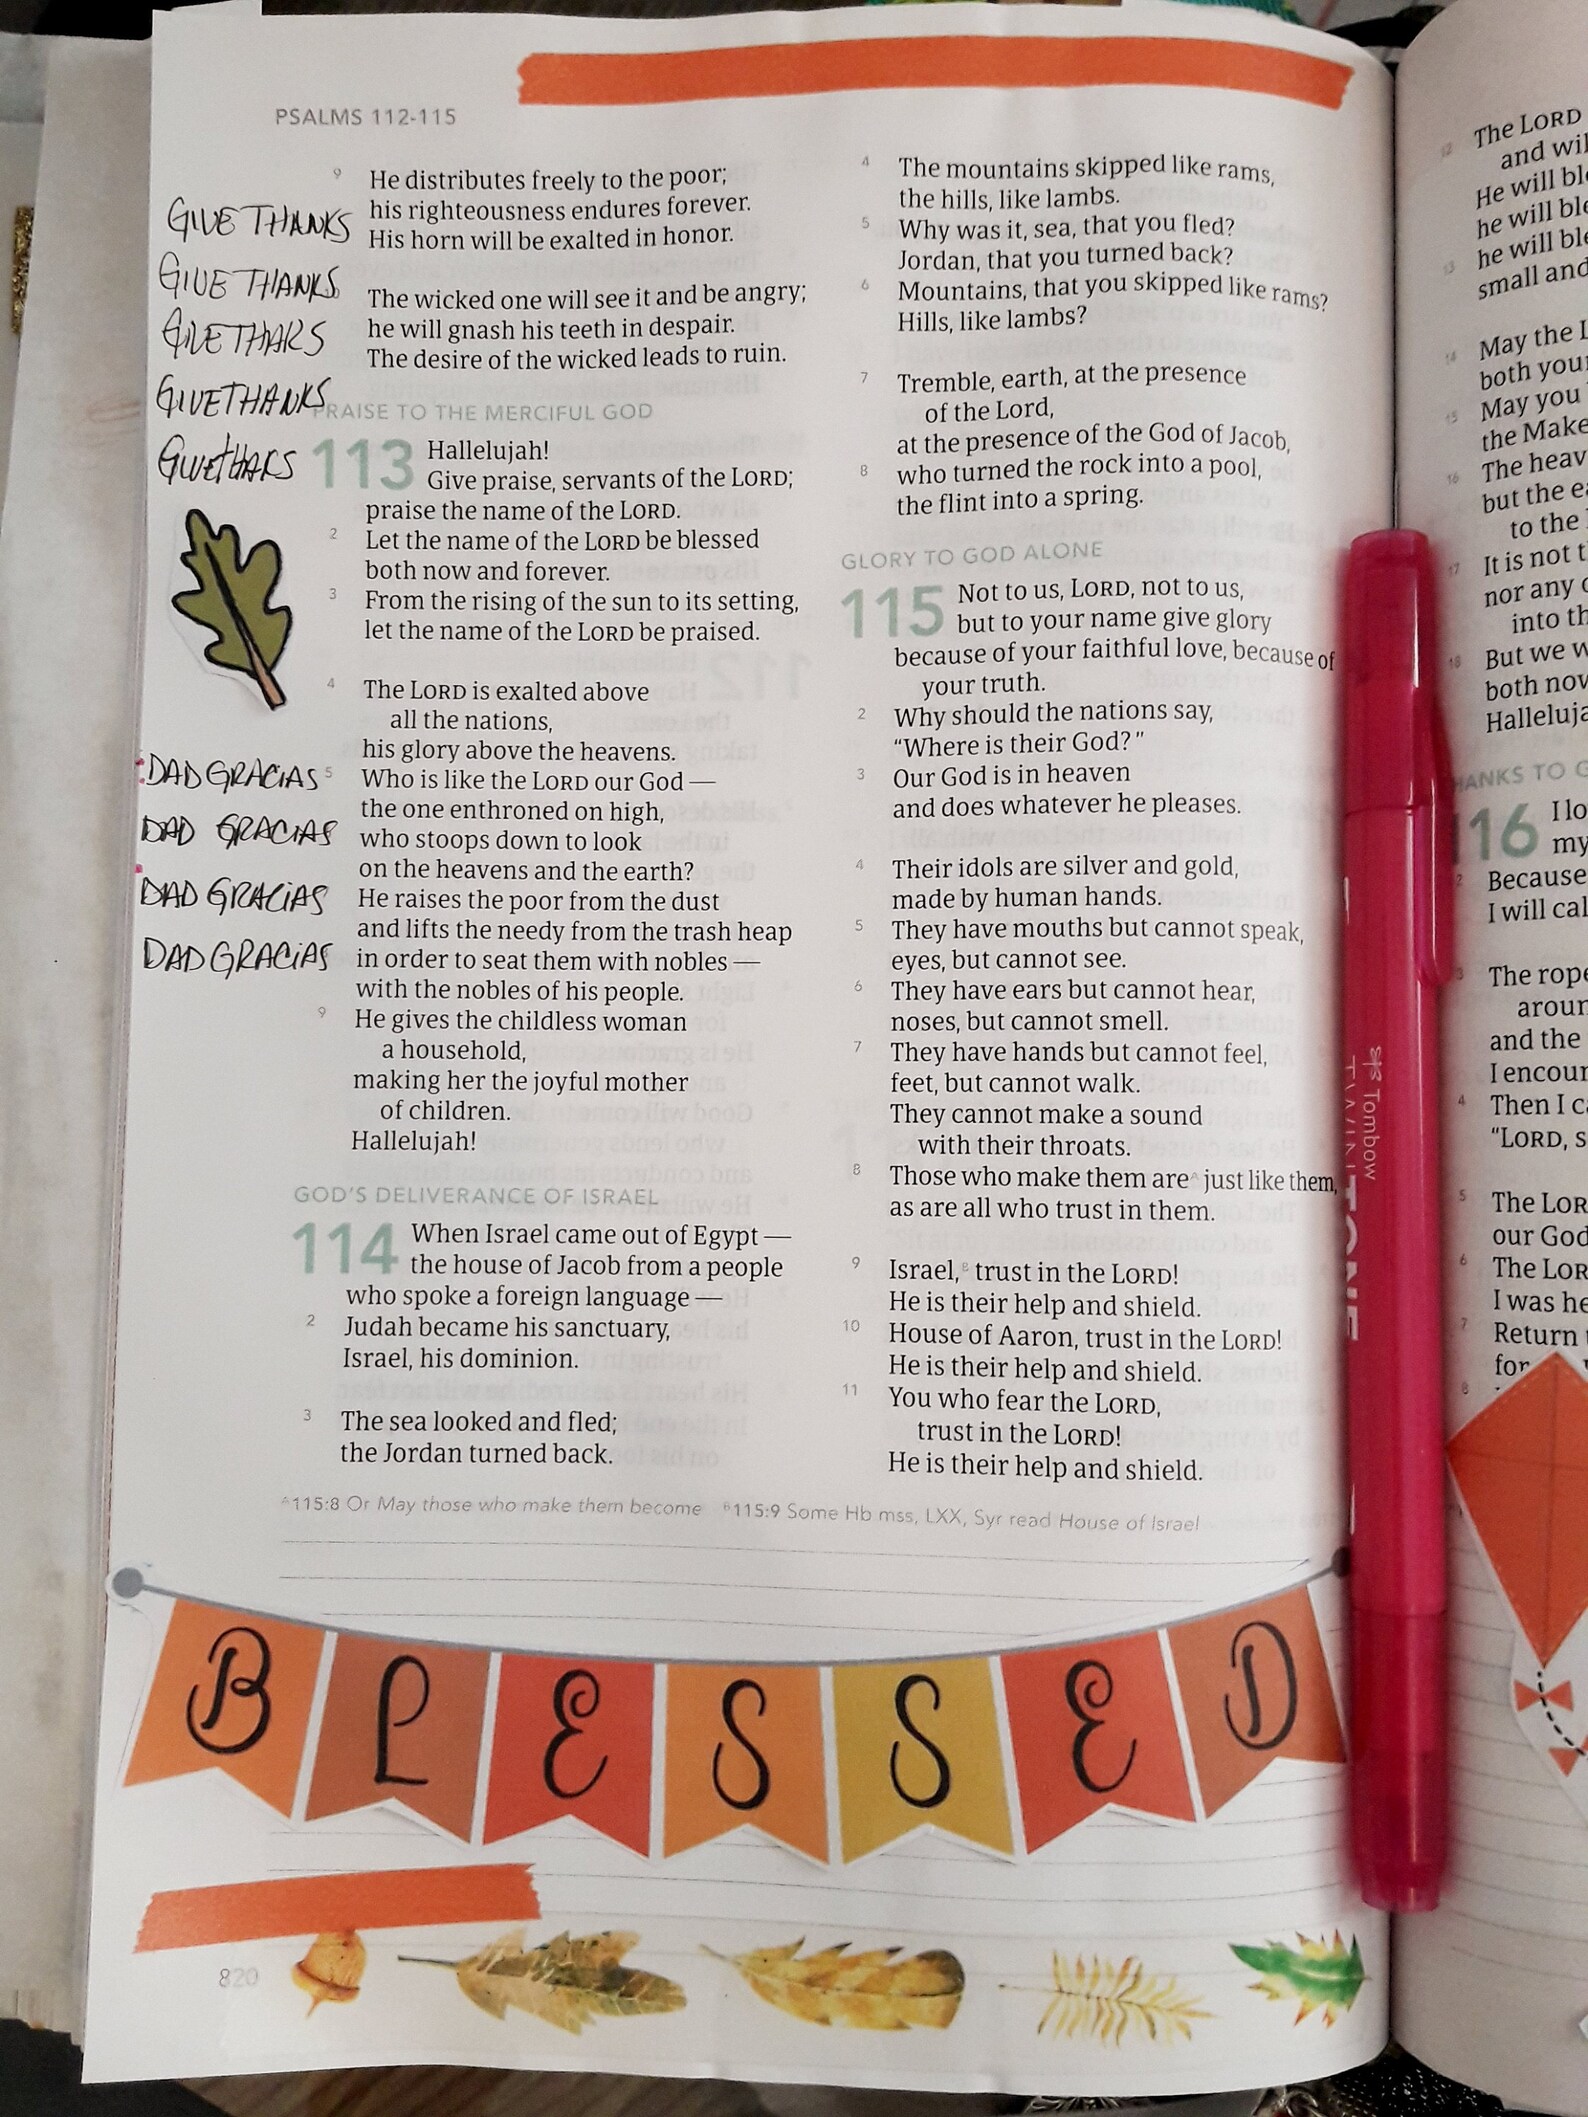 PSALMS 112-115
9 He distributes freely to the poor;
his righteousness endures forever.
His horn will be exalted in honor.
The wicked one will see it and be angry;
he will gnash his teeth in despair.
The desire of the wicked leads to ruin.
GIVE THANKS
GIVE THANKS
GIVETHAKS
GIVETHANKS
GIVETHAKS
PRAISE TO THE MERCIFUL GOD
113 Hallelujah!
Give praise, servants of the LORD;
praise the name of the LORD.
2 Let the name of the LORD be blessed
both now and forever.
3 From the rising of the sun to its setting,
let the name of the LORD be praised.
4 The LORD is exalted above
all the nations,
his glory above the heavens.
5 Who is like the LORD our God —
the one enthroned on high,
who stoops down to look
on the heavens and the earth?
He raises the poor from the dust
and lifts the needy from the trash heap
in order to seat them with nobles —
with the nobles of his people.
9 He gives the childless woman
a household,
making her the joyful mother
of children.
Hallelujah!
DAD GRACIAS
DAD GRACIAS
DAD GRACIAS
DAD GRACIAS
GOD'S DELIVERANCE OF ISRAEL
114 When Israel came out of Egypt —
the house of Jacob from a people
who spoke a foreign language —
2 Judah became his sanctuary,
Israel, his dominion.
3 The sea looked and fled;
the Jordan turned back.
4 The mountains skipped like rams,
the hills, like lambs.
5 Why was it, sea, that you fled?
Jordan, that you turned back?
6 Mountains, that you skipped like rams?
Hills, like lambs?
7 Tremble, earth, at the presence
of the Lord,
at the presence of the God of Jacob,
8 who turned the rock into a pool,
the flint into a spring.
GLORY TO GOD ALONE
115 Not to us, LORD, not to us,
but to your name give glory
because of your faithful love, because of
your truth.
2 Why should the nations say,
“Where is their God?”
3 Our God is in heaven
and does whatever he pleases.
4 Their idols are silver and gold,
made by human hands.
5 They have mouths but cannot speak,
eyes, but cannot see.
6 They have ears but cannot hear,
noses, but cannot smell.
7 They have hands but cannot feel,
feet, but cannot walk.
They cannot make a sound
with their throats.
8 Those who make them are^A just like them,
as are all who trust in them.
9 Israel,^B trust in the LORD!
He is their help and shield.
10 House of Aaron, trust in the LORD!
He is their help and shield.
11 You who fear the LORD,
trust in the LORD!
He is their help and shield.
^A115:8 Or May those who make them become ^B115:9 Some Hb mss, LXX, Syr read House of Israel
BLESSED
820
Tombow
The LORD
and
He will
he will
he will
small and
May the
both
May you
the
The
but the
to the
It is not
nor any
into
But we
both
116 I
my
2 Because
I will
3 The
and the
I
4 Then I
“LORD,
5 The
our God
6 The
I was
7 Return
for